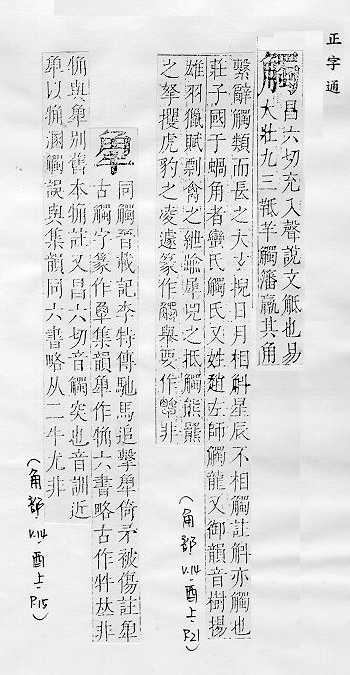 正字通
觸 昌六切充入聲說文觝也易
大壯九三羝羊觸藩羸其角
繫辭觸類而長之太玄掜日月相斛星辰不相觸註斛亦觸也
莊子國于蝸角者蠻氏觸氏又姓趙左師觸龍又御韻音樹揚
雄羽獵賦剽禽之紲踰犀兕之抵觸熊羆
之拏攫虎豹之凌遽篆作觸舉要作非
(角部 V.14 酉上 P.21)
同觸晉載記李特傳馳馬追擊倚矛被傷註
古觸字篆作集韻作觕六書略古作牪非
觕與別舊本觕註又昌六切音觸突也音訓近
以觕溷觸誤與集韻同六書略从二牛尤非
(角部 V.14 酉上 P.15)